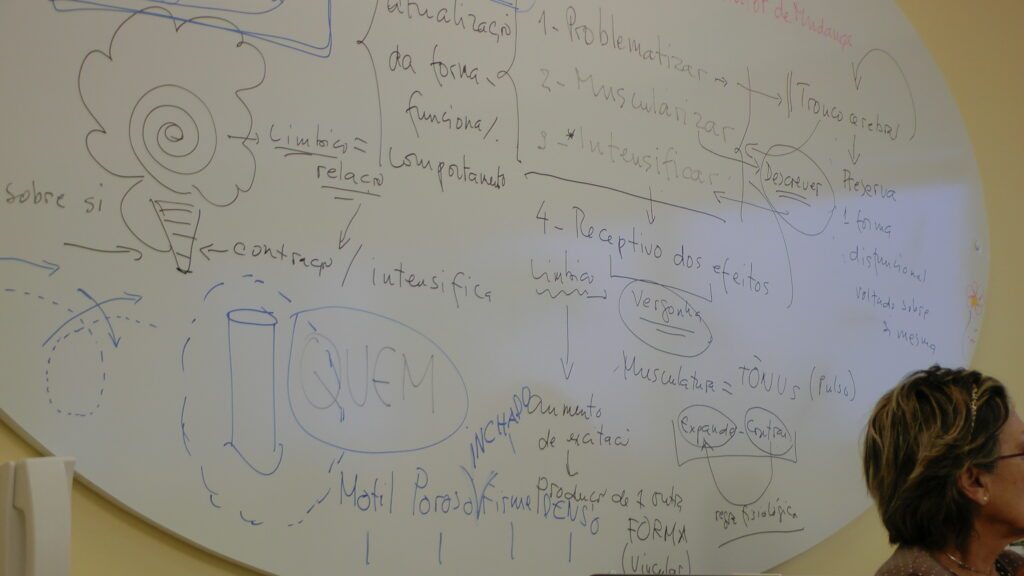 de Mudança
atualização
da forma
funcional.
comportamento
1 - Problematizar
2 - Muscularizar
3 - *Intensificar
4 - Receptivo dos efeitos
Tronco cerebral
Descrever
Preserva
1 forma
disfuncional
voltada sobre
a mesma
Limbico =
relação
sobre si
contração / intensifica
Limbico
Vergonha
QUEM
Musculatura = TÔNUS (Pulso)
Expande - Contrai
regra fisiológica
aumento
de excitação
INCHADO
Motil Poroso Firme DENSO
Produção de 1 outra
FORMA
(Vincular)